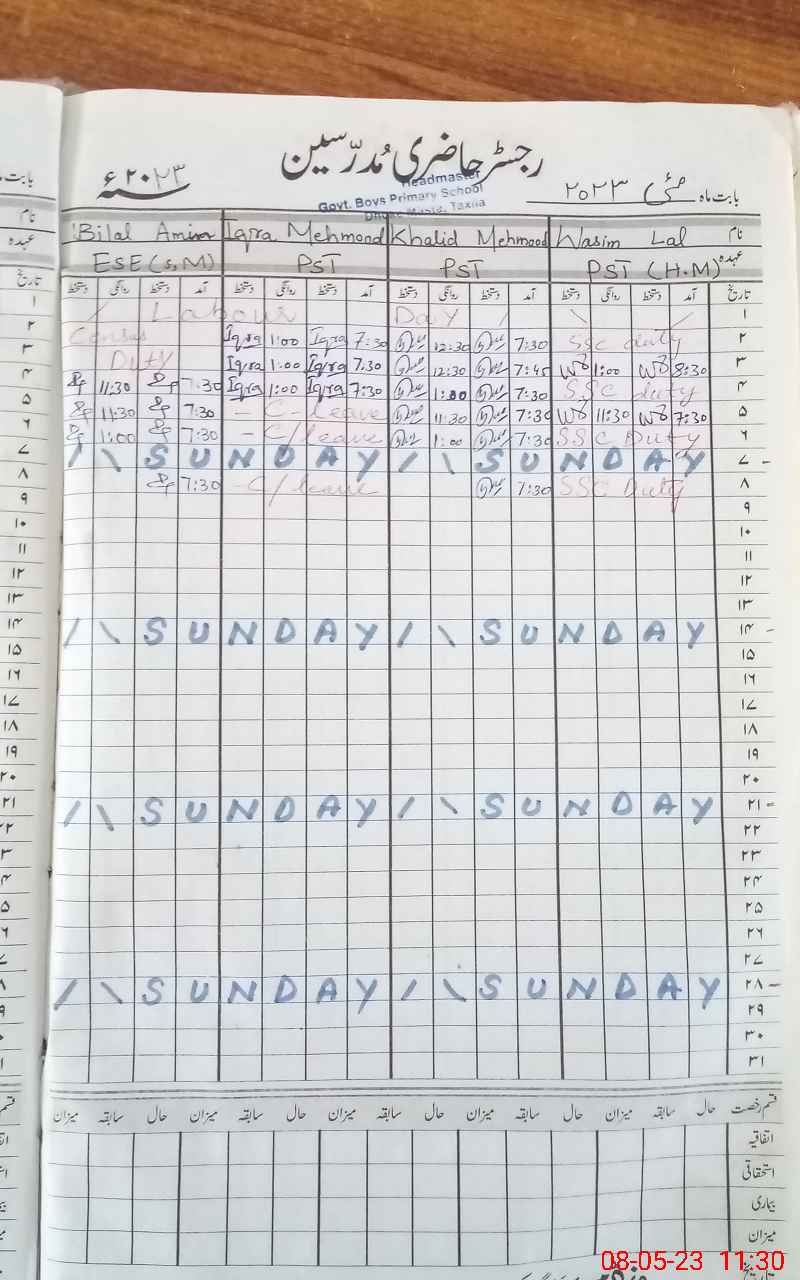 رجسٹر حاضری مُدرّسین
بابت ماہ مئی ۲۰۲۳
۲۰۲۳ء
Headmaster
Govt. Boys Primary School
Taxila
نام Wasim Lal Khalid Mehmood Iqra Mehmood Bilal Amin
عہدہ PST (H.M) PST PST ESE (S,M)
تاریخ آمد دستخط روانگی دستخط آمد دستخط روانگی دستخط آمد دستخط روانگی دستخط آمد دستخط روانگی دستخط
۱ / \ Labour Day / \
۲ Census Iqra 1:00 Iqra 7:30 12:30 7:30 SSC duty
۳ Duty Iqra 1:00 Iqra 7.30 12:30 7:45 1:00 8:30
۴ 11:30 7.30 Iqra 1:00 Iqra 7:30 1:00 7:30 SSC duty
۵ 11:30 7:30 - C-leave 11:30 7:30 11:30 7:30
۶ 1:00 7:30 - C/leave 1:00 7:30 SSC Duty
۷ / \ SUNDAY / \ SUNDAY -
۸ 7:30 - C/leave 7:30 SSC Duty
۹
۱۰
۱۱
۱۲
۱۳
۱۴ / \ SUNDAY / \ SUNDAY -
۱۵
۱۶
۱۷
۱۸
۱۹
۲۰
۲۱ / \ SUNDAY / \ SUNDAY -
۲۲
۲۳
۲۴
۲۵
۲۶
۲۷
۲۸ / \ SUNDAY / \ SUNDAY -
۲۹
۳۰
۳۱
قسم رخصت حال سابقہ میزان حال سابقہ میزان حال سابقہ میزان حال سابقہ میزان حال سابقہ میزان
اتفاقیہ
استحقاقی
بیماری
میزان
08-05-23 11:30